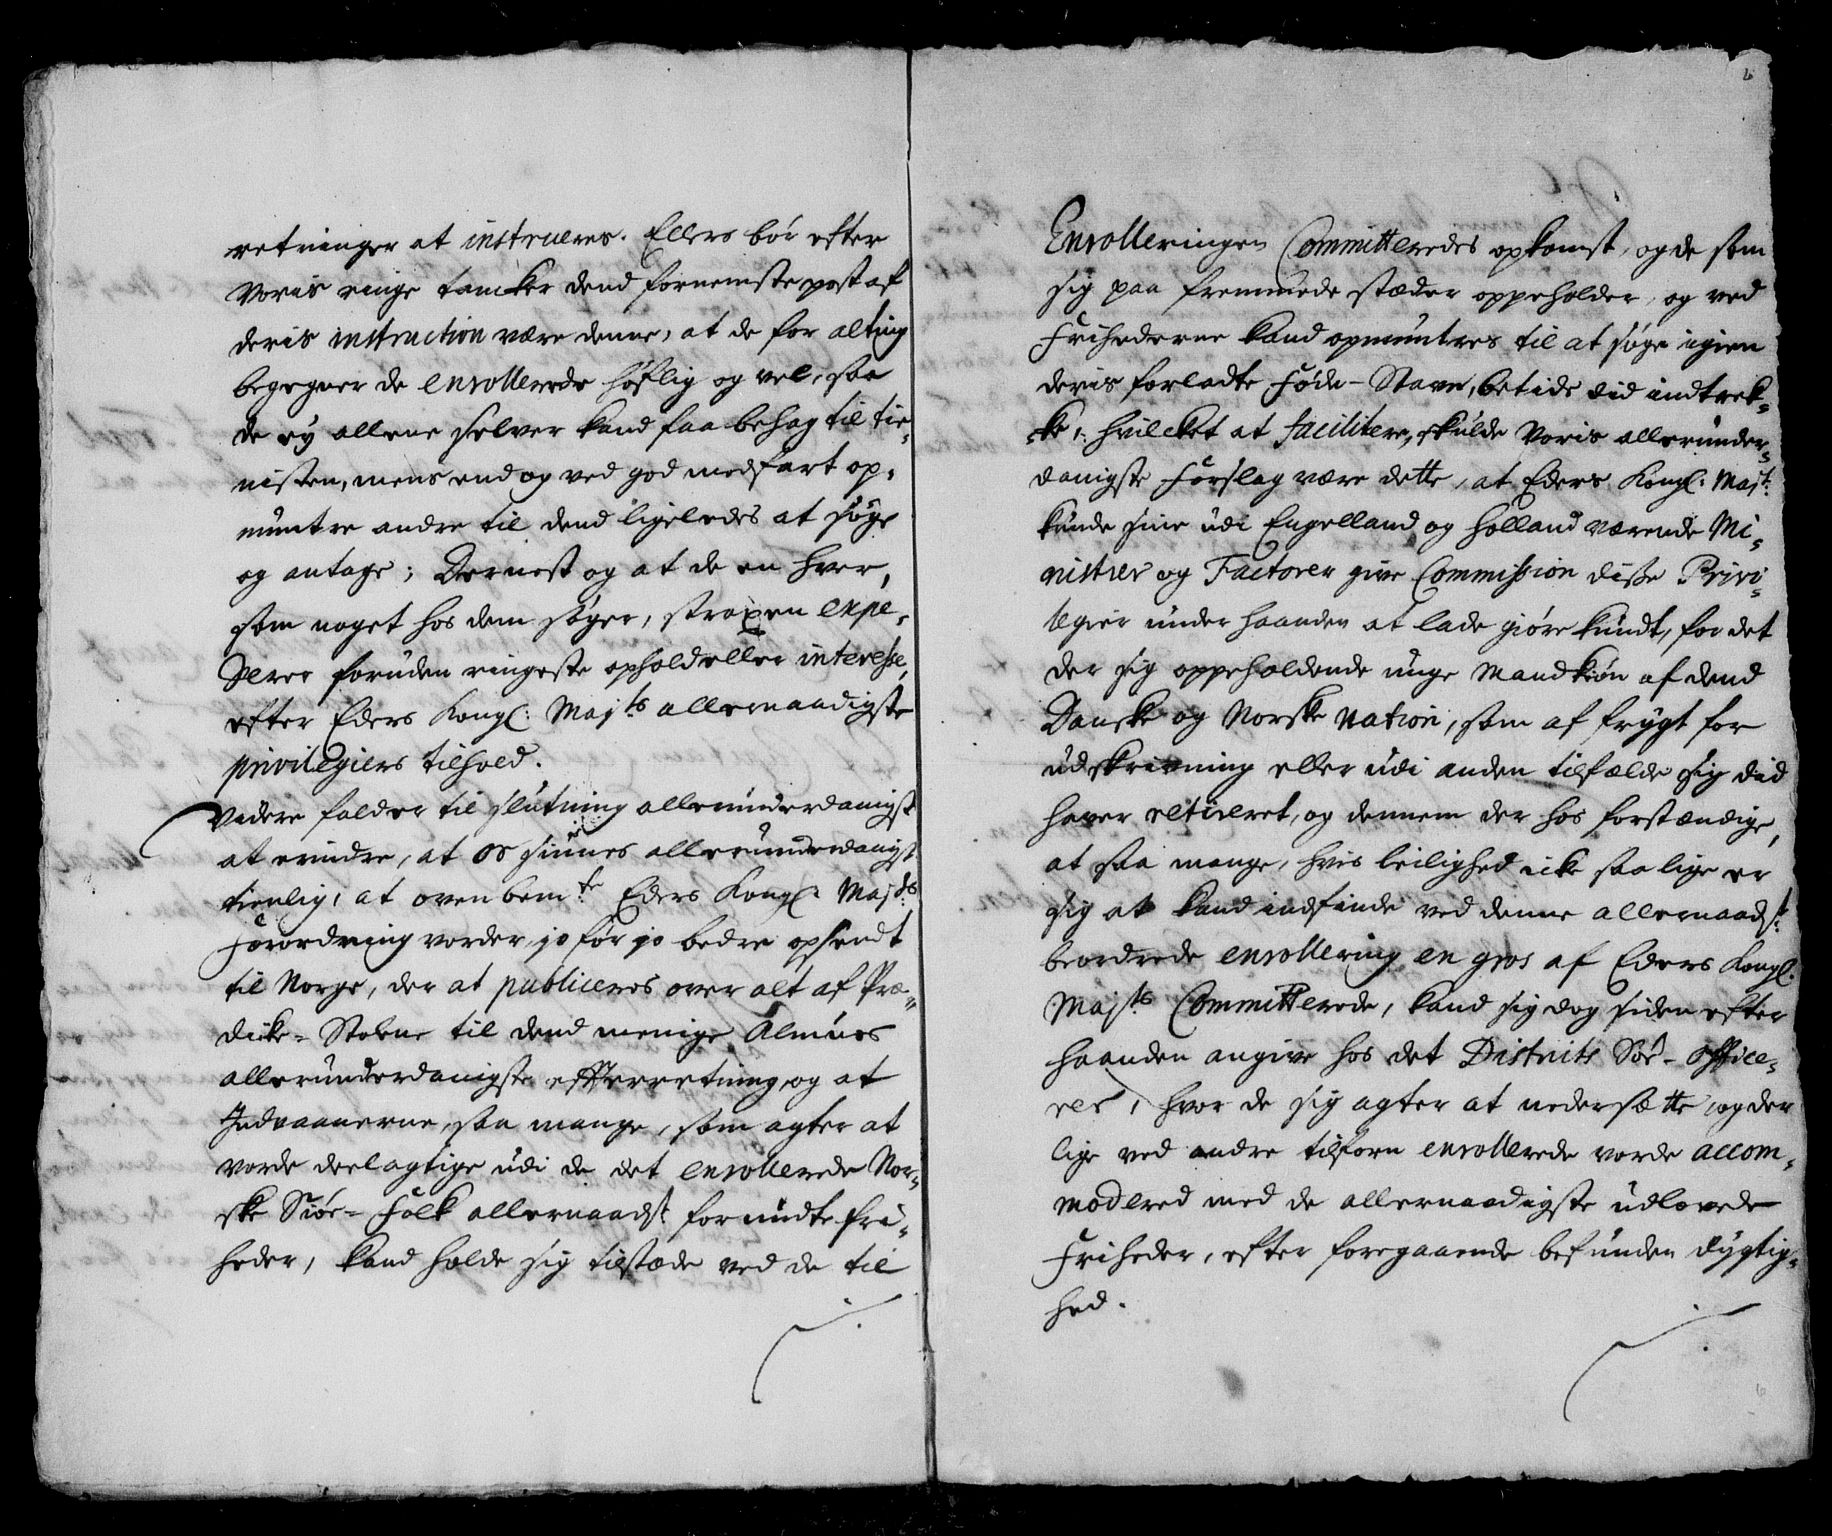 retninger at instrueres. Ellers bör efter
Voris ringe tancker dend fornemste post af
deris instruction være denne, at de for alting
begegner de enrollerede höflig og vel, saa
de ey allene selver kand faa behag til tie-
nisten, mens end og ved god medfart op-
muntre andre til dend ligeledes at søge
og antage; Dernest og at de en hver,
som noget hos dem søger, straxen expe-
derer foruden ringeste ophold eller interesse,
efter Eders Kongl: Majts allernaadigste
privilegiers tilhold.
Videre falder til slutning allerunderdanigst
at erindre, at os siunes allerunderdanigst
tienlig, at ovenbemte Eders Kongl: Majts
Forordning vorder jo før jo bedre opsendt
til Norge, der at publiceres over alt af Præ-
dicke-Stolene til dend menige Almues
allerunderdanigste efterretning, og at
Indvaanerne, saa mange, som agter at
vorde deelagtige udi de det enrollerede Nor-
ske Siöe-Folk allernaadst forundte fri-
heder, kand holde sig tilstæde ved de til
Enrolleringen Committeredes opkomst, og de som
sig paa fremmede stæder oppeholder, og ved
Frihederne kand opmuntres til at søge igien
deris forladte Føde-Stavn, betids did indtrek-
ke, hvilcket at facilitere, skulde Voris allerunder-
danigste Forslag være dette, at Eders Kongl: Majt:
kunde sine udi Engelland og Holland værende Mi-
nistrer og Factorer give Commission disse Privi-
legier under haanden at lade giöre kundt, for det
der sig oppeholdende unge Mandkiön af dend
Danske og Norske Nation, som af frygt for
udskrivning eller udi anden tilfælde sig did
haver retireret, og dennem der hos forstændige,
at saa mange, hvis leilighed icke saa lige er
sig at kand indfinde ved denne allernaadst:
beordrede enrollering en gros af Eders Kongl.
Majts Committerede, kand sig dog siden efter
haanden angive hos det Districts Söe-Office-
rer, hvor de sig agter at nedersætte, og der
lige ved andre tilforn enrollerede vorde accom-
modered med de allernaadigste udlovede
Friheder, efter foregaaende befunden dygtig-
hed.